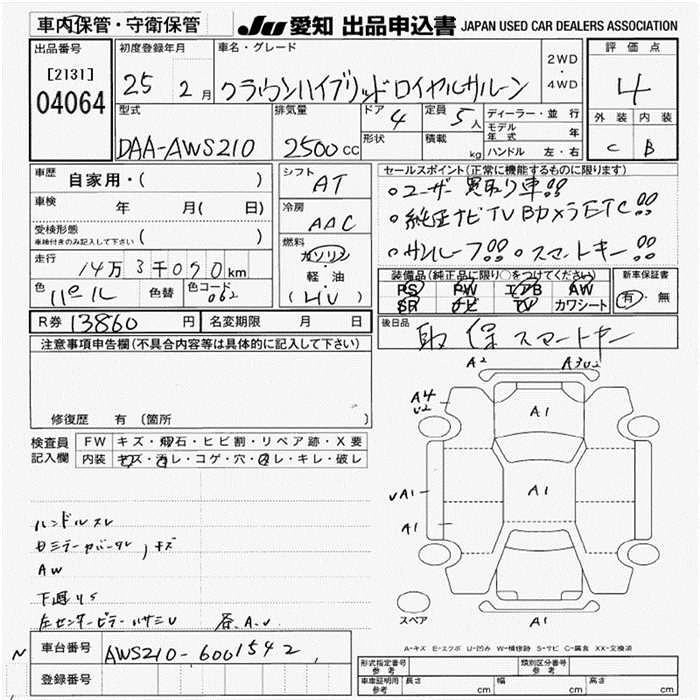 車内保管・守衛保管
JU 愛知 出品申込書 JAPAN USED CAR DEALERS ASSOCIATION
出品番号
[2131]
04064
初度登録年月
25 2月
車名・グレード
クラウンハイブリッドロイヤルサルーン
2WD
・
4WD
評価点
4
外装 内装
C B
型式
DAA-AWS210
排気量
2500cc
ドア 4
形状
定員 5人
積載 kg
ディーラー・並行
モデル年式 年
ハンドル 左・右
車歴 自家用・( )
車検 年 月( 日)
受検形態
車検付きのみ記入して下さい ( )
走行 14万3千090km
色 パール 色替 色コード 062
シフト AT
冷房 AAC
燃料 ガソリン
・
軽・油
(HV)
セールスポイント(正常に機能するものに限ります)
○ユーザー買取り車!!
○純正ナビTV Bカメラ ETC!!
○サンルーフ!! ○スマートキー!!
装備品(純正品に限り○をつけてください)
PS PW エアB AW
SR ナビ TV カワシート
新車保証書
有・無
R券 13860円
名変期限 月 日
後日品 取 保 スマートキー
注意事項申告欄(不具合内容等は具体的に記入して下さい)
修復歴 有(箇所 )
検査員記入欄
FW キズ・飛石・ヒビ割・リペア跡・X要
内装 キズ・汚レ・コゲ・穴・スレ・キレ・破レ
A2
A3U2
A4
U2
A1
UA1
A1
A1
A1
ハンドルスレ
AW
下廻りS
スペア
A1
A-キズ E-エクボ U-凹み W-補修跡 S-サビ C-腐食 XX-交換済
車台番号 AWS210-6001542
登録番号
形式指定番号
参考
類別区分番号
参考
車庫証明用
参考
長さ cm 幅 cm 高さ cm